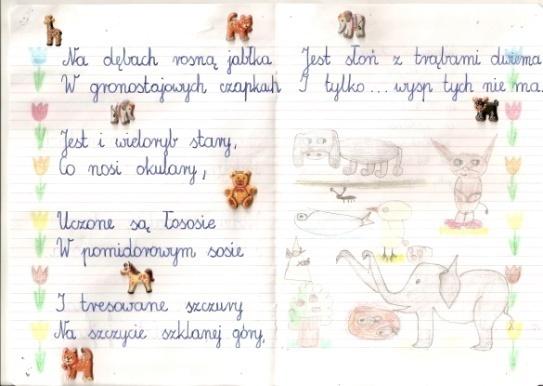 Na dębach rosną jabłka
W gronostajowych czapkach
Jest i wieloryb stary,
Co nosi okulary,
Uczone są łososie
W pomidorowym sosie
I tresowane szczury
Na szczycie szklanej góry,
Jest słoń z trąbami dwiema
I tylko... wysp tych nie ma.